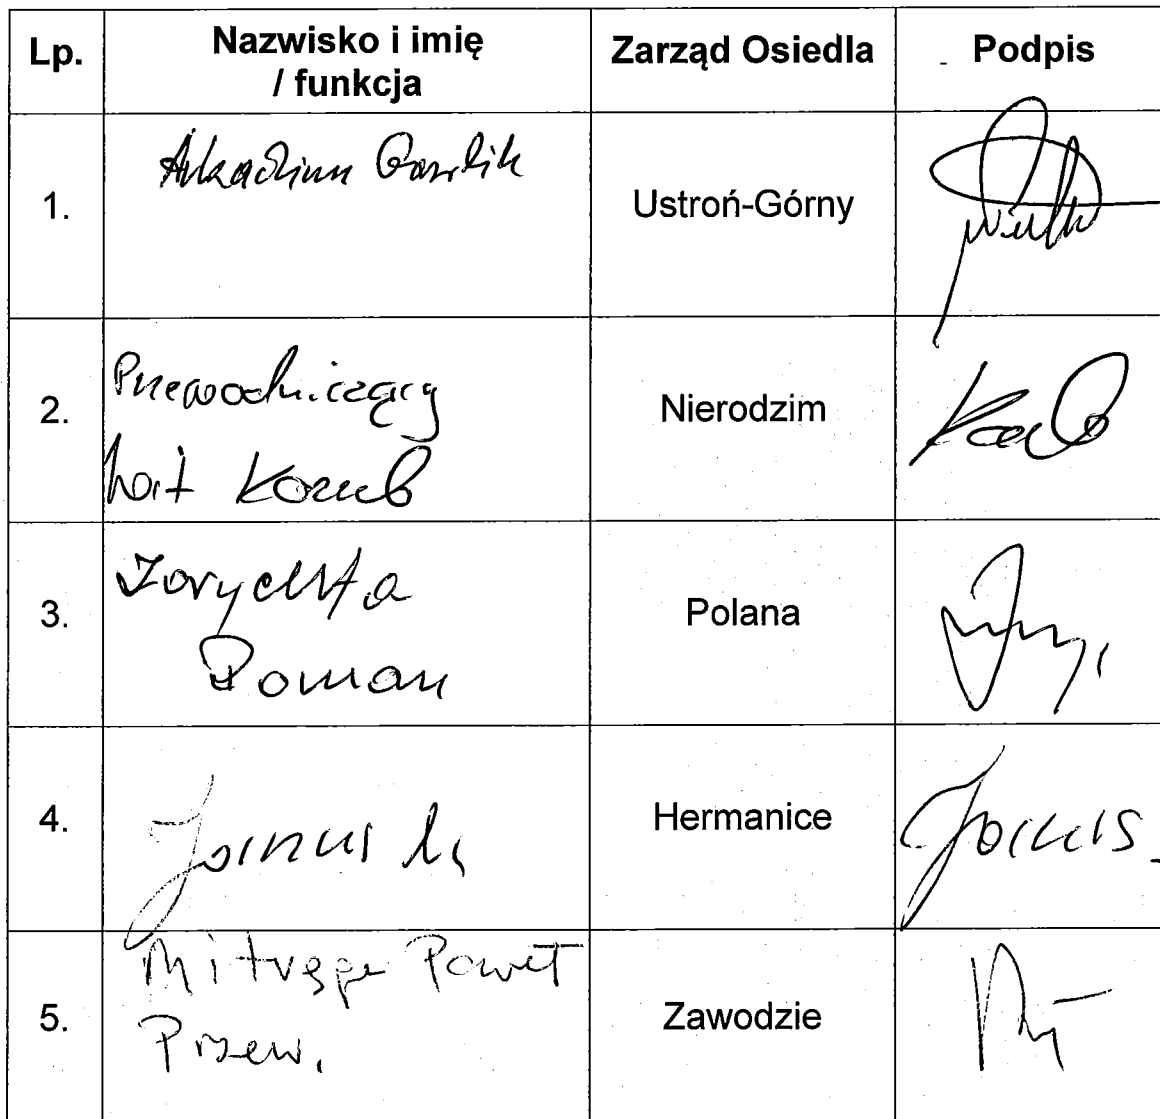 Lp. Nazwisko i imię / funkcja Zarząd Osiedla Podpis
1. Arkadiusz Gawlik Ustroń-Górny
2. Przewodniczący Kozub Nierodzim
3. Zorychta Roman Polana
4. Janus Hermanice Janus
5. Mitręga Paweł Przew. Zawodzie